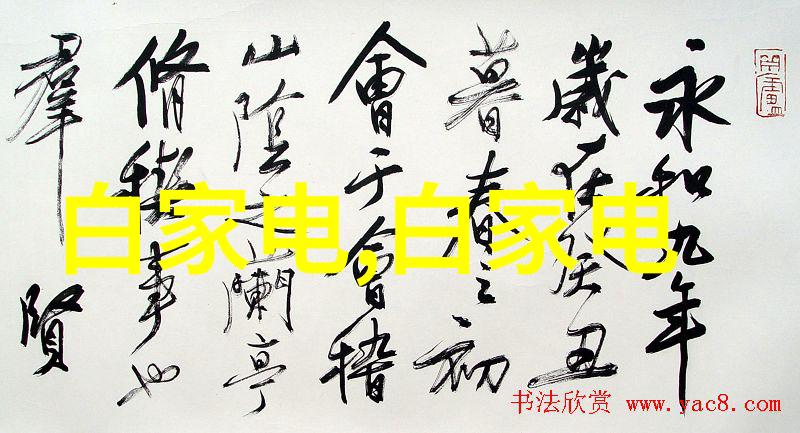 永和九年
歲在癸丑
暮春之初
會于會稽
山陰之蘭亭
脩稧事也
羣賢
白家电,白家电
书法欣赏 www.yac8.com